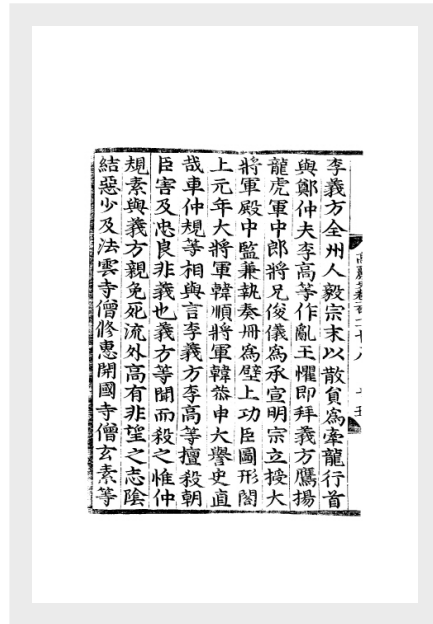 李義方全州人毅宗末以散負爲牽龍行首
與鄭仲夫李高等作亂王懼即拜義方鷹揚
龍虎軍中郞將兄俊儀爲承宣明宗立授大
將軍殿中監兼執奏冊爲壁上功臣圖形閣
上元年大將軍韓順將軍韓恭申大譽史直
哉車仲規等相與言李義方李高等擅殺朝
臣害及忠良非義也義方等聞而殺之惟仲
規素與義方親免死流外高有非望之志陰
結惡少及法雲寺僧修惠開國寺僧玄素等